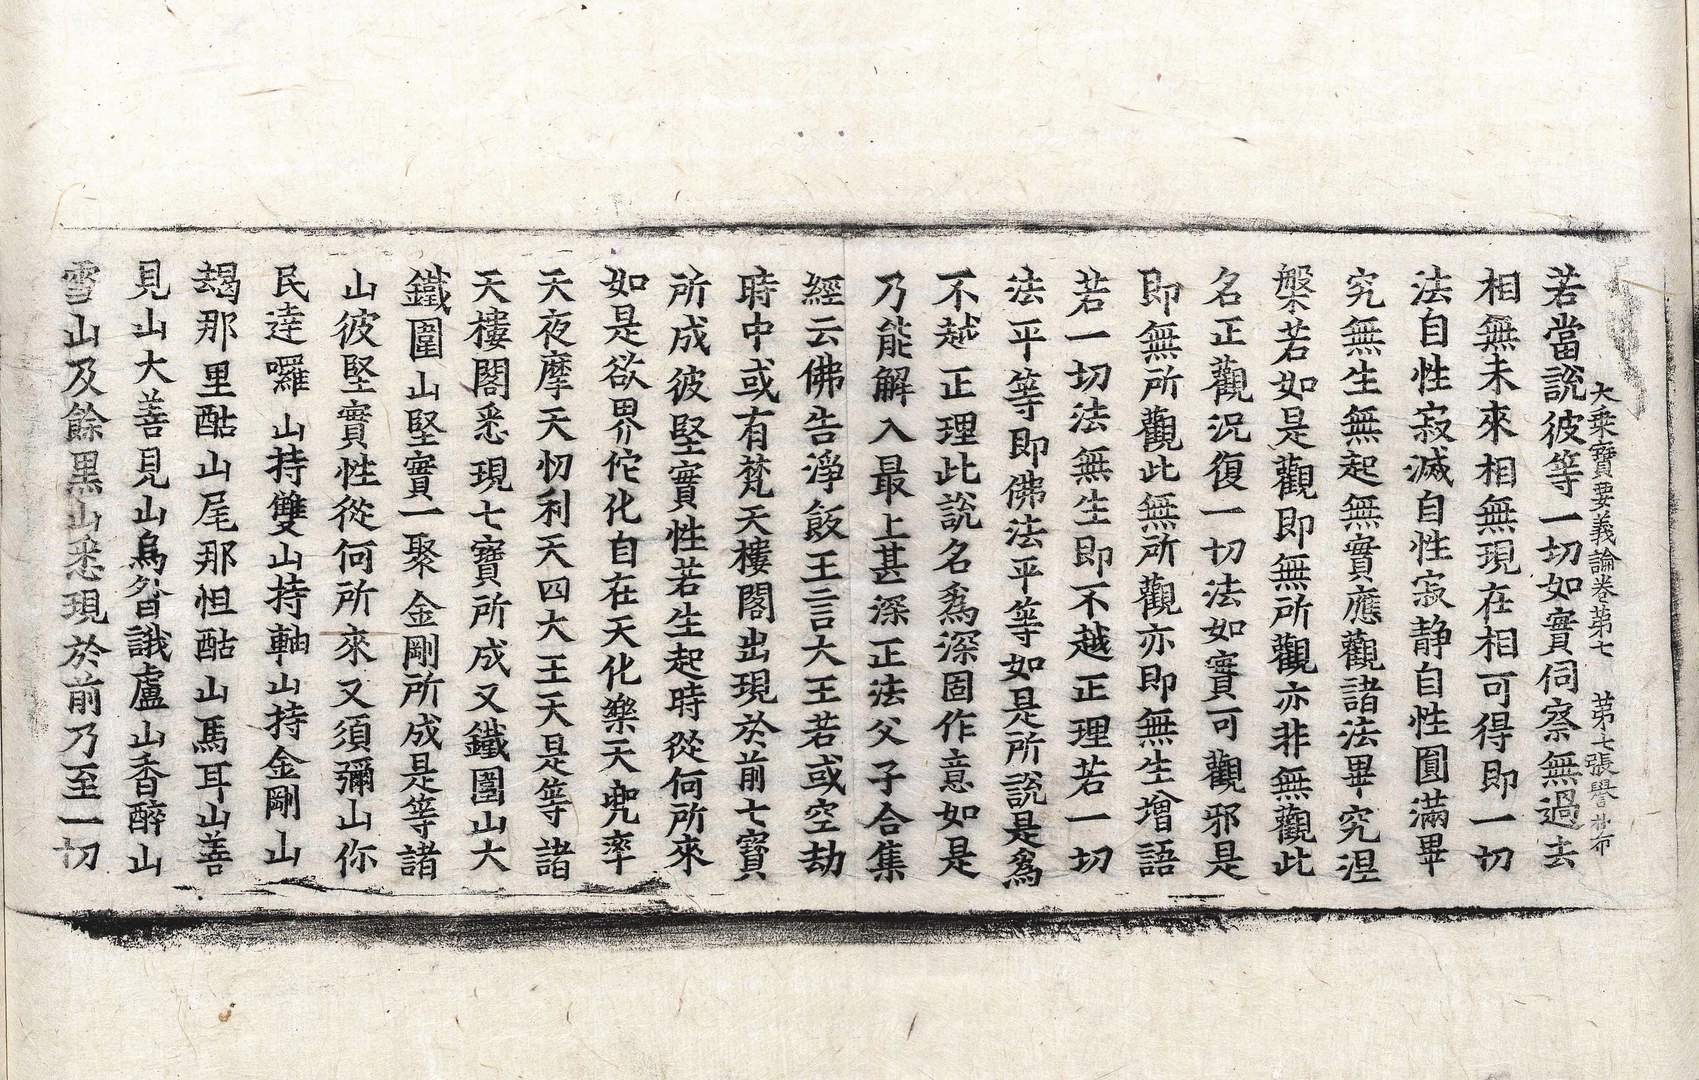 大乘寶要義論卷第七　第七張譽
若當說彼等一切如實伺察無過去
相無未來相無現在相可得即一切
法自性寂滅自性寂静自性圓滿畢
究無生無起無實應觀諸法畢究涅
槃若如是觀即無所觀亦非無觀此
名正觀況復一切法如實可觀邪是
即無所觀此無所觀亦即無生增語
若一切法無生即不越正理若一切
法平等即佛法平等如是所說是爲
不越正理此說名爲深固作意如是
乃能解入最上甚深正法父子合集
經云佛告淨飯王言大王若或空劫
時中或有梵天樓閣出現於前七寶
所成彼堅實性若生起時從何所來
如是欲界佗化自在天化樂天兜率
天夜摩天忉利天四大王天是等諸
天樓閣悉現七寶所成又鐵圍山大
鐵圍山堅實一聚金剛所成是等諸
山彼堅實性從何所來又須彌山你
民達囉山持雙山持軸山持金剛山
朅那里酤山尾那怛酤山馬耳山善
見山大善見山烏誐盧山香醉山
雪山及餘黑山悉現於前乃至一切